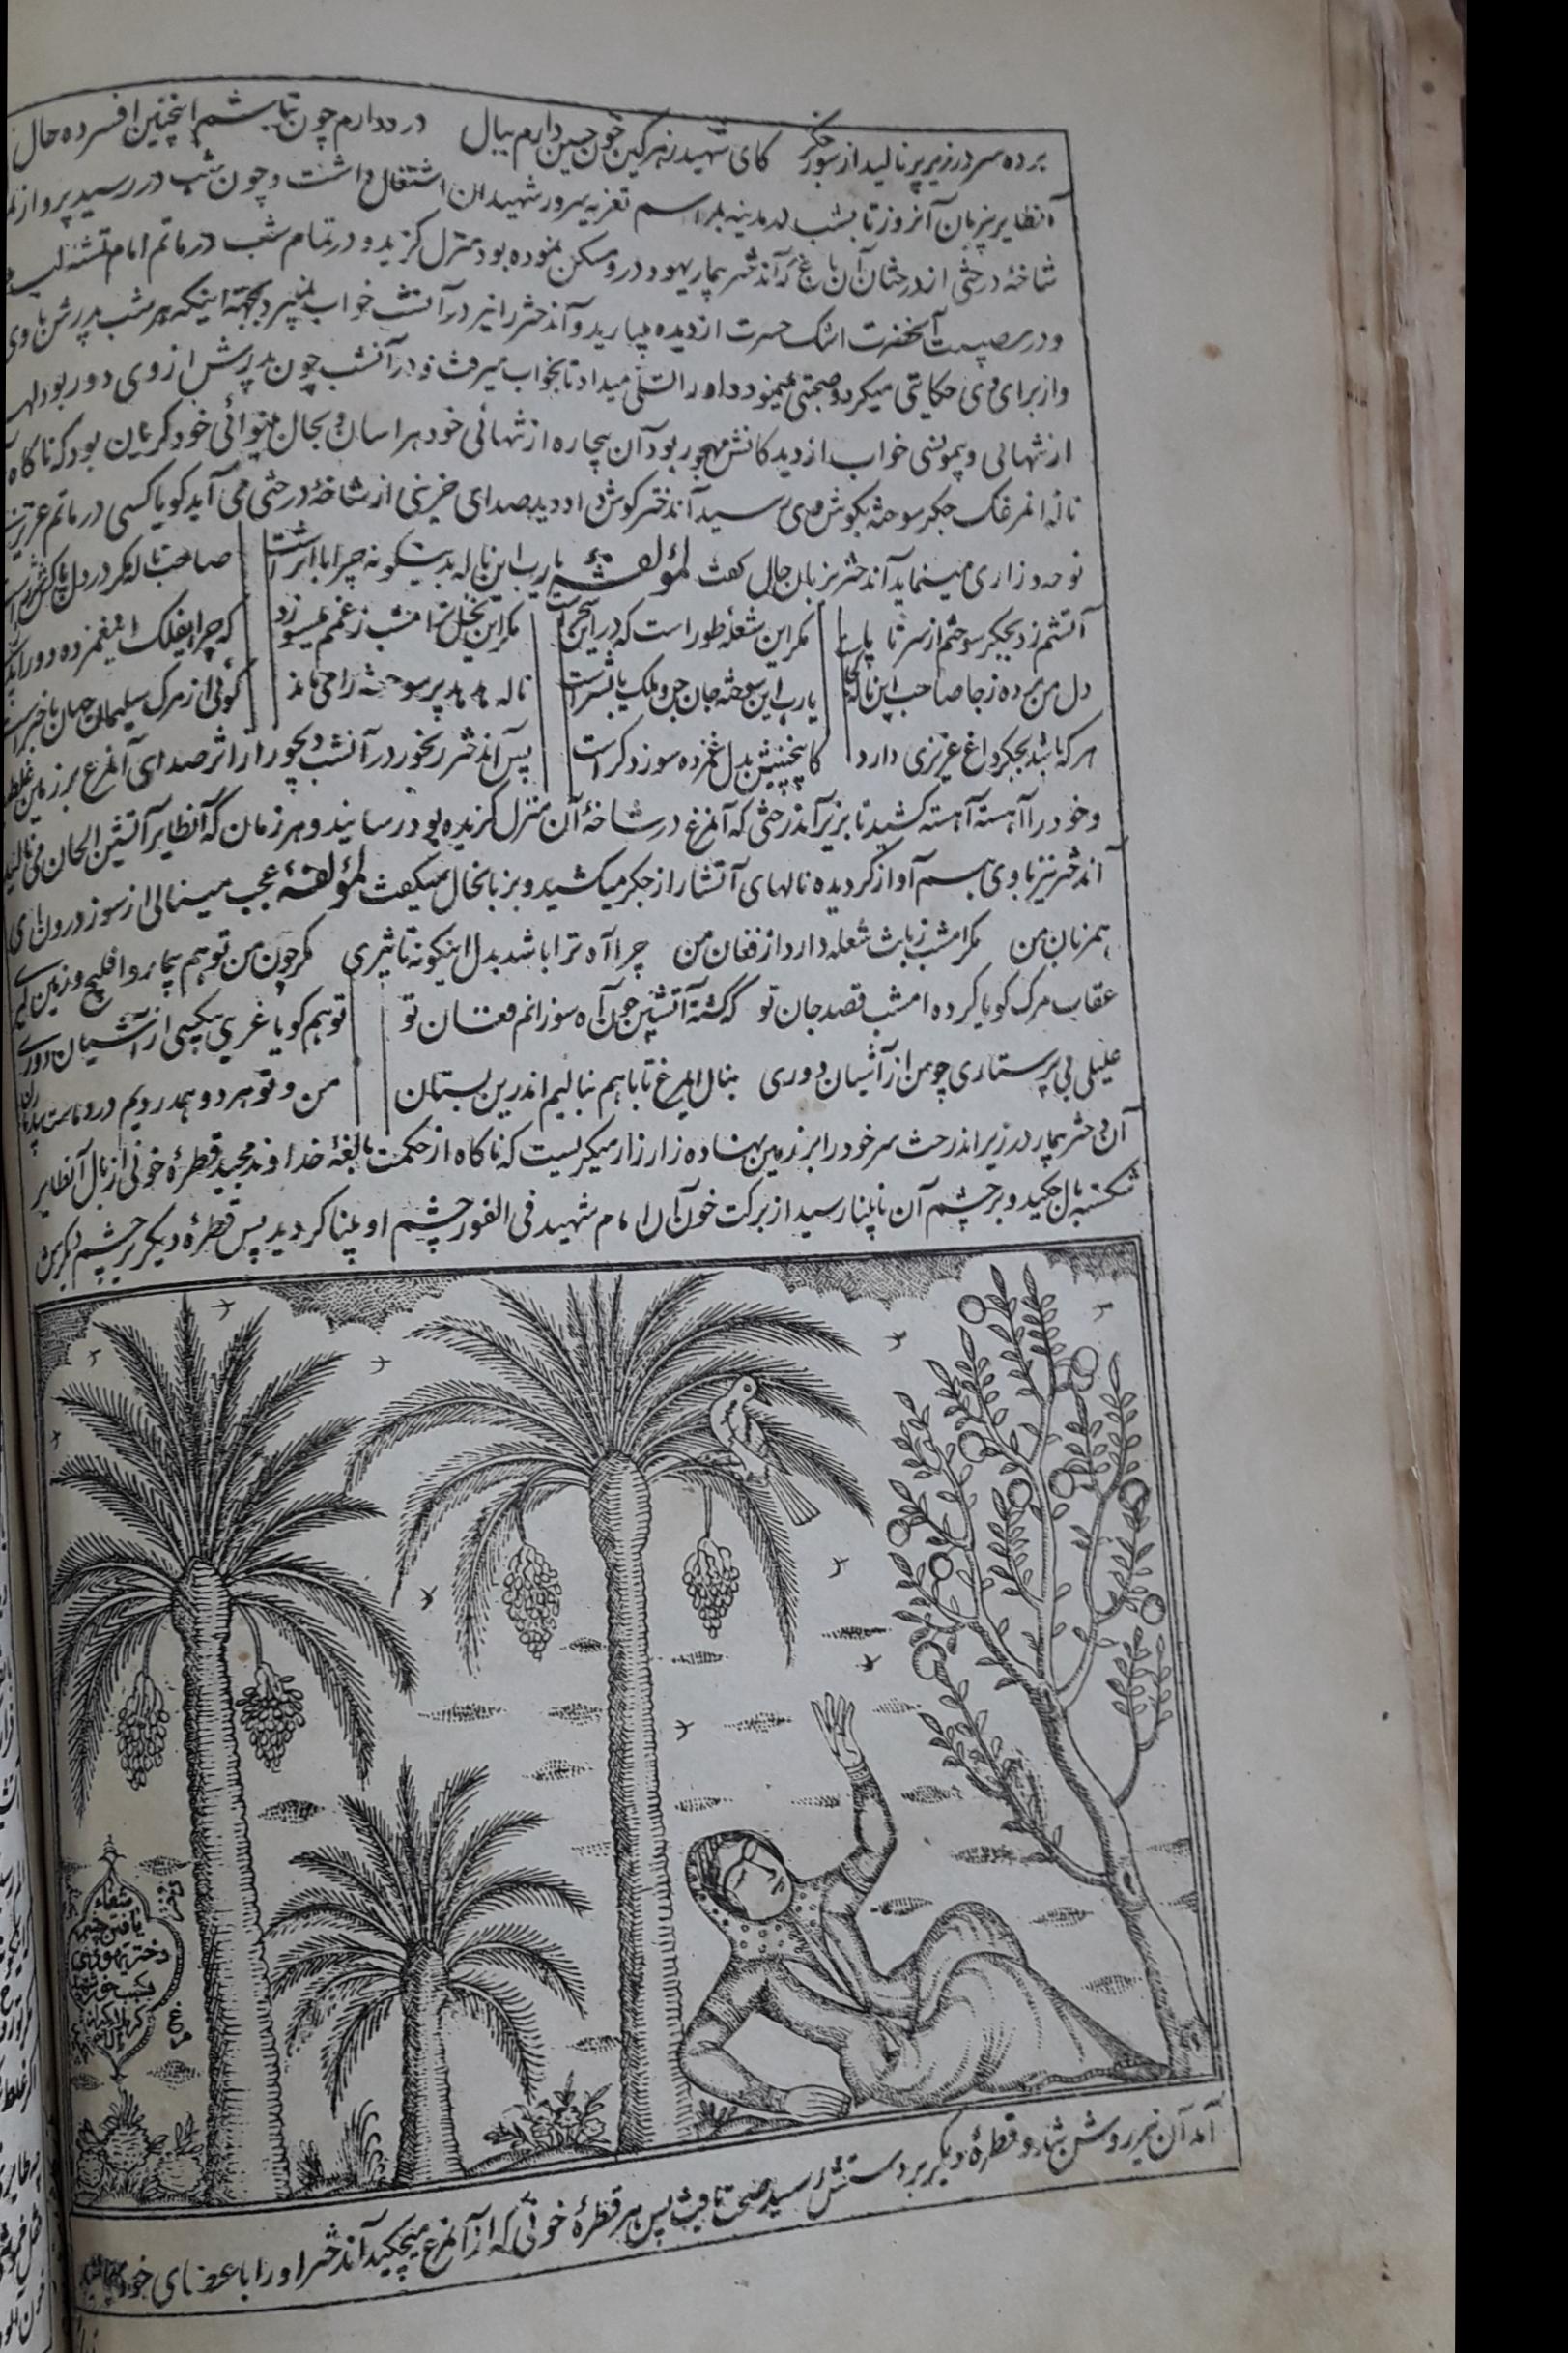 برده سر در زیر پر نالید از سوز جگر کای شهید زهر کین خون حسین دارم ببال درد دارم چون نباشم اینچنین افسرده حال
آنطایر بزبان آنروز تا بشب در مدینه بمراسم تعزیه سرور شهیدان اشتغال داشت و چون شب در رسید پرواز
شاخهٔ درختی از درختان آن باغ که آندختر بیمار یهود در و مسکن نموده بود منزل گزید و در تمام شب در ماتم امام تشنه لب
و در مصیبت آنحضرت اشک حسرت از دیده میبارید و آندختر را نیز در آنشب خواب نمیبرد بجهة اینکه هر شب پدرش با وی
و از برای وی حکایتی میکرد و صحبتی مینمود و او را تسلی میداد تا بخواب میرفت و در آنشب چون پدرش از وی دور بود
از تنهائی و بیمونسی خواب از دیدگانش مهجور بود آن بیچاره از تنهائی خود هراسان و بحال بینوائی خود گریان بود که ناگاه
ناله آنمرغک جگر سوخته بگوش وی رسید آندختر گوش داد دید صدای حزینی از شاخهٔ درختی می آید گویا کسی در ماتم عزیز
نوحه و زاری مینماید آندختر بزبان حال گفت لمؤلفه یارب این ناله بدینگونه چرا با اثر است صاحب ناله مگر در دل
آتشم زد بجگر سوختم از سر تا پا مگر این شعلهٔ طور است که در این شجر است مگر این نخل ترا امشب ز غمم میسوزد که چرا ایفلک اینغمزده
دل من برده ز جا صاحب این ناله یارب این سوخته جان جن و ملک یا بشر است ناله هدهد پر سوخته را می ماند گوئی از مرگ سلیمان جهان با خبر است
هر که باشد بجگر داغ عزیزی دارد کاینچنین بدل غمزده سوز دگر است پس آندختر رنجور در آنشب دیجور از اثر صدای آنمرغ بر زمین
و خود را آهسته آهسته کشید تا بزیر آندرختی که آنمرغ در شاخهٔ آن منزل گزیده بود رسانید و هر زمان که آنطایر آتشین الحان می نالید
آندختر نیز با وی هم آواز گردیده نالهای آتشبار از جگر میکشید و بزبانحال میگفت لمؤلفه عجب مینالی از سوز درون ای
همزبان من مگر امشب زبانت شعله دارد از فغان من چرا آه ترا باشد بدل اینگونه تاثیری مگر چون من تو هم بیمار و افلیج و زمین گیری
عقاب مرگ گویا کرده امشب قصد جان تو که گشته آتشین چون آه سوزانم فغان تو تو هم گویا غریبی بیکسی از آشیان دوری
علیلی بی پرستاری چو من از آشیان دوری بنال ایمرغ تا با هم بنالیم اندرین بستان من و تو هر دو همدردیم
آن دختر بیمار در زیر اندرخت سر خود را بر زمین نهاده زار زار میگریست که ناگاه از حکمت بالغهٔ خداوند مجید قطرهٔ خونی از بال آنطایر
شکسته بال چکید و بر چشم آن نابینا رسید از برکت خون آن امام شهید فی الفور چشم او بینا گردید پس قطرهٔ دیگر بر چشم دیگرش
شفاء
یافتن چشم
دختر یهودی
کربلا
مرغ
آمد آن نیز روشن شد و قطرهٔ دیگر بر دستش رسید صحت یافت پس هر قطرهٔ خونی که از آنمرغ میچکید آندختر او را با عضای خود